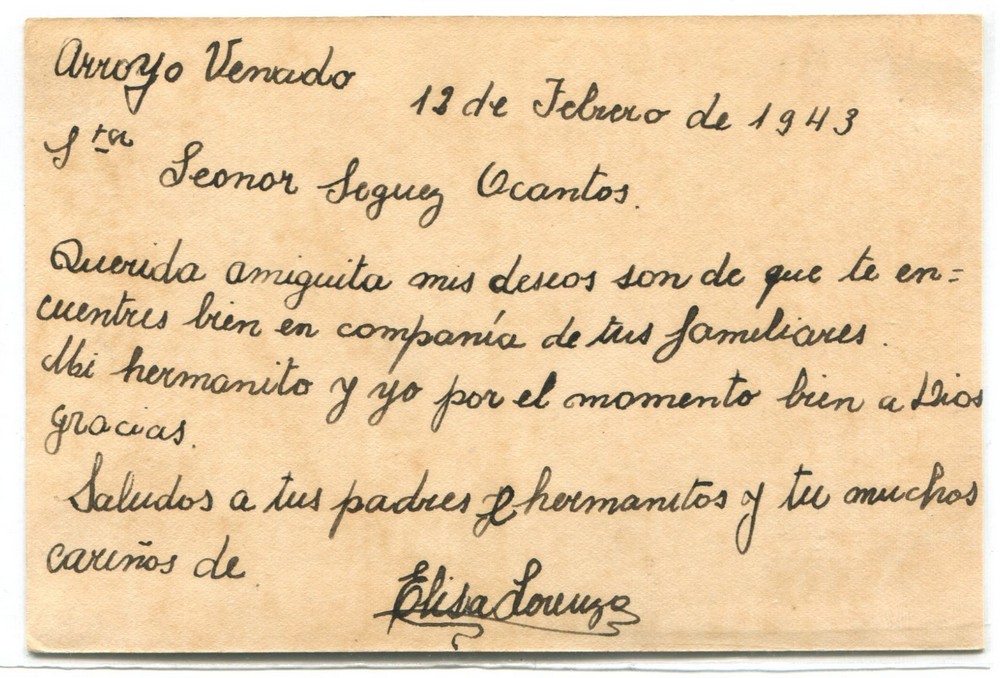 Arroyo Venado
12 de Febrero de 1943
Sta Leonor Seguez Ocantos.
Querida amiguita mis deseos son de que te en=
cuentres bien en compañía de tus familiares.
Mi hermanito y yo por el momento bien a Dios
gracias.
Saludos a tus padres y hermanitos y tu muchos
cariños de
Elisa Lorenzo